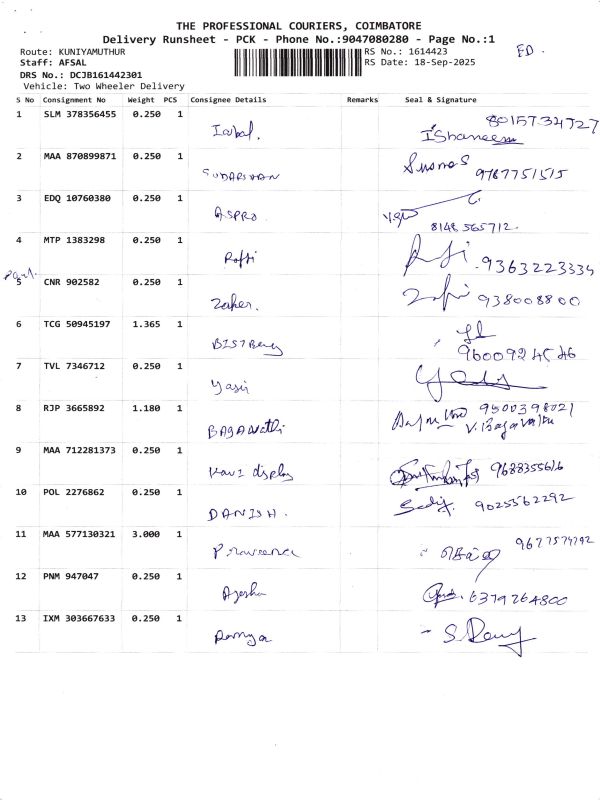 THE PROFESSIONAL COURIERS, COIMBATORE
Delivery Runsheet - PCK - Phone No.:9047080280 - Page No.:1
Route: KUNIYAMUTHUR RS No.: 1614423
Staff: AFSAL RS Date: 18-Sep-2025
DRS No.: DCJB161442301
Vehicle: Two Wheeler Delivery
S No Consignment No Weight PCS Consignee Details Remarks Seal & Signature
1 SLM 378356455 0.250 1 Iqbal. 8015734727
2 MAA 870899871 0.250 1 SUDARSHAN 9787751515
3 EDQ 10760380 0.250 1 ASPRO. 8148 565712.
4 MTP 1383298 0.250 1 Rafi 9363223334
5 CNR 902582 0.250 1 Zaker. 938008800
6 TCG 50945197 1.365 1
7 TVL 7346712 0.250 1 Yasir
8 RJP 3665892 1.180 1 BAGAWathi 9500398021
9 MAA 712281373 0.250 1 Kavi display 9688355616
10 POL 2276862 0.250 1 DANISH. 9025562292
11 MAA 577130321 3.000 1 Praveena
12 PNM 947047 0.250 1 Ayesha 6379264800
13 IXM 303667633 0.250 1 Ramya